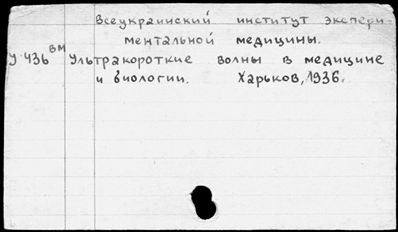 Всеукраинский институт экспери-
ментальной медицины.
У-436 ВМ Ультракороткие волны в медицине
и биологии. Харьков, 1936.